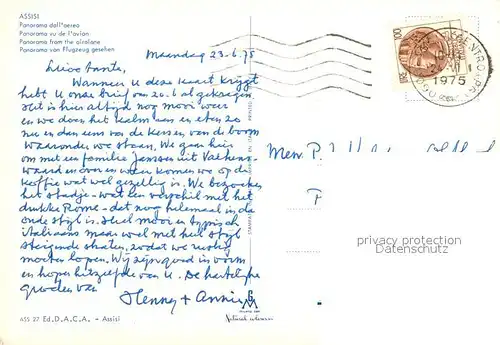 ASSISI
Panorama dall'aereo
Panorama vu de l'avion
Panorama from the airplane
Panorama von Flugzeug gesehen
Maandag 23.6.75
Lieve tante,
Wanneer U deze kaart krijgt
hebt U onze brief van 20.6 al gekregen.
Het is hier altijd nog mooi weer
en we doen het kalm aan en eten zo
nu en dan eens van de kersen van de boom
waaronder we staan. We gaan hier
om met een familie Janssen uit
en weer komen we op de
koffie wat wel gezellig is. We bezoeken
het stadje - wat een verschil met het
drukke Rome - det nog helemaal in de
oude stijl is. Heel mooi en typisch
italiaans maar wel met heel stijl
stijgende straten, zodat we rustig
moeten lopen. Wij zijn goed in vorm
en hopen hetzelfde van U. De hartelijke
groeten van
Henny + Annie
100
1975
Mevr. P.
privacy protection
Datenschutz
ASS 27 Ed. D.A.C.A. - Assisi